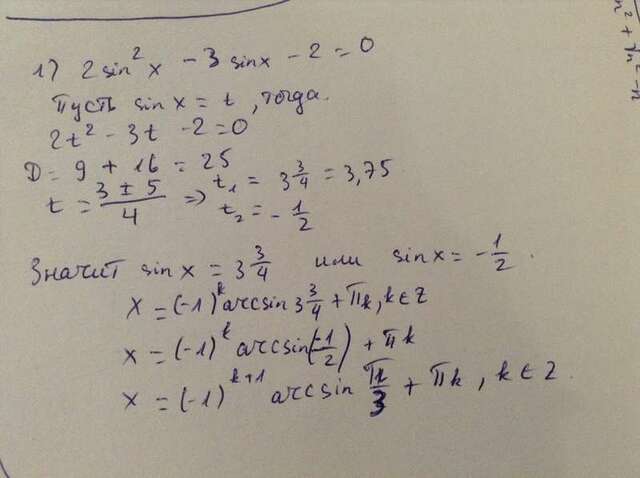 1) 2 sin² x - 3 sin x - 2 = 0
Пусть sin x = t, тогда
2t² - 3t - 2 = 0
D = 9 + 16 = 25
t = (3 ± 5)/4 ⇒ t₁ = 3 3/4 = 3,75
t₂ = - 1/2
Значит sin x = 3 3/4 или sin x = - 1/2.
x = (-1)^k arcsin 3 3/4 + πk, k ∈ Z
x = (-1)^k arcsin(-1/2) + πk
x = (-1)^(k+1) arcsin π/3 + πk, k ∈ Z.